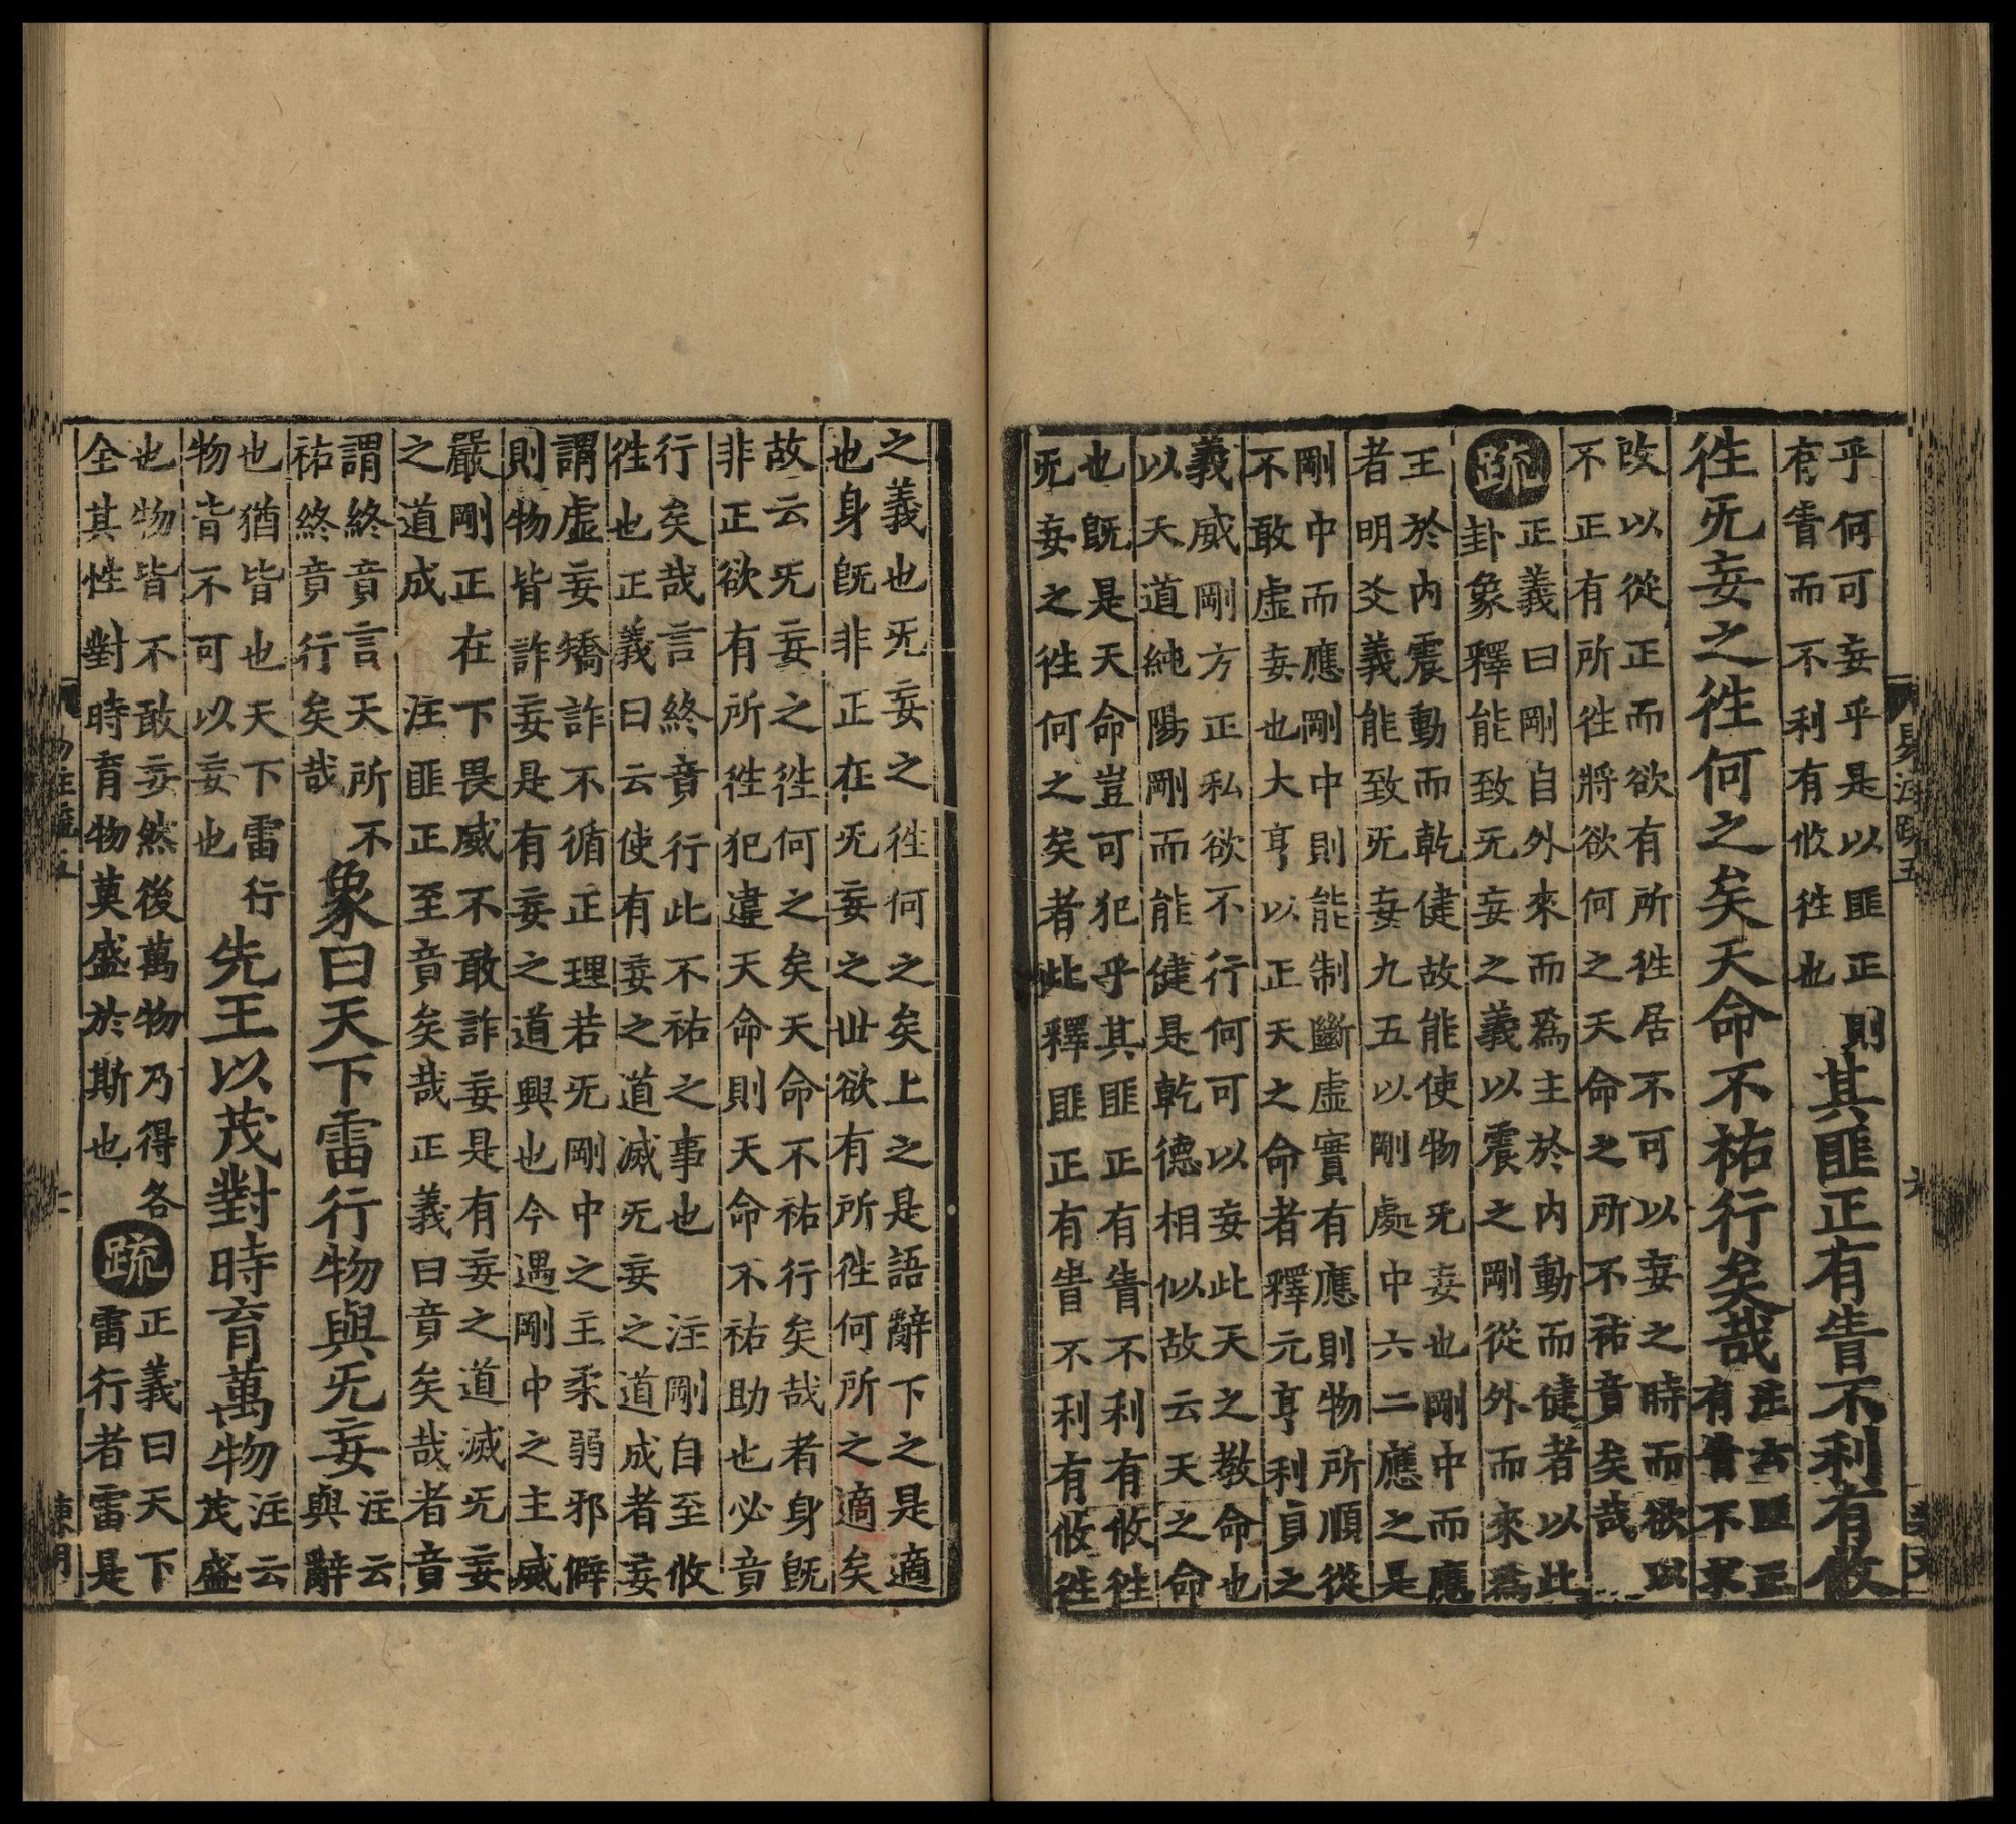 易注疏五
乎何可妄乎是以匪正則
有眚而不利有攸往也
其匪正有眚不利有攸
往无妄之往何之矣天命不祐行矣哉
注云匪正
有眚不求
改以從正而欲有所往居不可以妄之時而欲以
不正有所往將欲何之天命之所不祐竟矣哉
疏
正義曰剛自外來而爲主於内動而健者以此
卦象釋能致无妄之義以震之剛從外而來爲
王於内震動而乾健故能使物无妄也剛中而應
者明爻義能致无妄九五以剛處中六二應之是
剛中而應剛中則能制斷虛實有應則物所順從
不敢虛妄也大亨以正天之命者釋元亨利貞之
義威剛方正私欲不行何可以妄此天之教命也
以天道純陽剛而能健是乾德相似故云天之命
也旣是天命豈可犯乎其匪正有眚不利有攸往
无妄之往何之矣者此釋匪正有眚不利有攸往
之義也无妄之往何之矣上之是語辭下之是適
也身旣非正在无妄之世欲有所往何所之適矣
故云无妄之往何之矣天命不祐行矣哉者身旣
非正欲有所往犯違天命則天命不祐助也必竟
行矣哉言終竟行此不祐之事也 注剛自至攸
往也正義曰云使有妄之道滅无妄之道成者妄
謂虛妄矯詐不循正理若无剛中之主柔弱邪僻
則物皆詐妄是有妄之道興也今遇剛中之主威
嚴剛正在下畏威不敢詐妄是有妄之道滅无妄
之道成 注匪正至竟矣哉正義曰竟矣哉者竟
謂終竟言天所不
祐終竟行矣哉
象曰天下雷行物與无妄
注云
與辭
也猶皆也天下雷行
物皆不可以妄也
先王以茂對時育萬物
注云
茂盛
也物皆不敢妄然後萬物乃得各
全其性對時育物莫盛於斯也
疏
正義曰天下
雷行者雷是